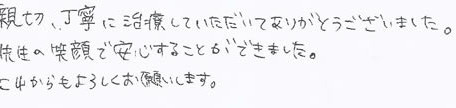 親切、丁寧に治療していただいてありがとうございました。
先生の笑顔で安心することができました。
これからもよろしくお願いします。